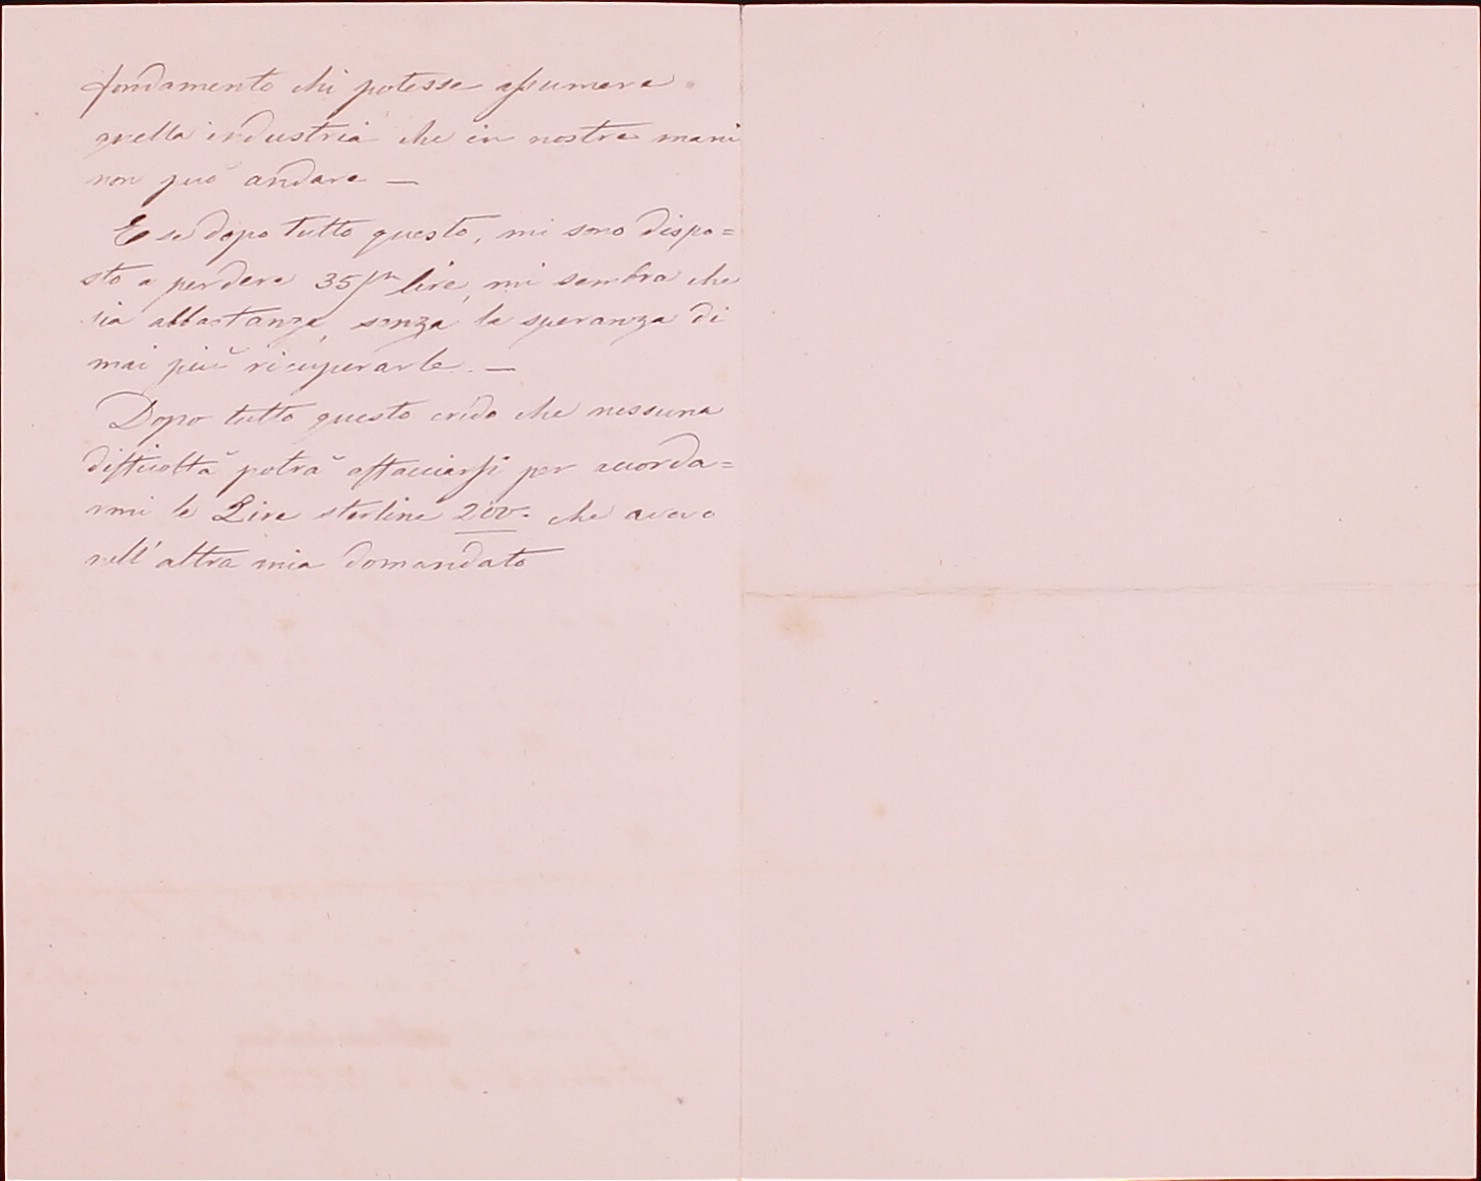 fondamento chi potesse assumere
quella industria che in nostre mani
non può andare —
E se dopo tutto questo, mi sono dispo=
sto a perdere 35/m lire, mi sembra che
sia abbastanza, senza la speranza di
mai più ricuperarle. —
Dopo tutto questo credo che nessuna
difficoltà potrà affacciarsi per accorda=
rmi le Lire sterline 200. che avevo
nell'altra mia domandato